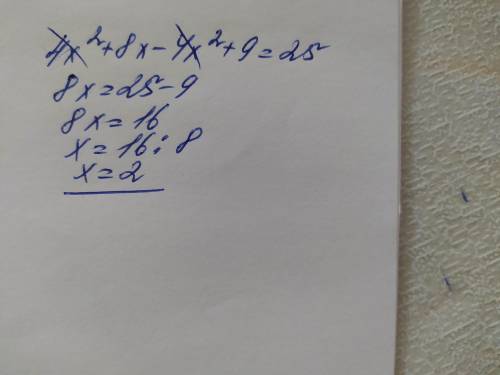 4x²+8x-4x²+9=25
8x=25-9
8x=16
x=16:8
x=2